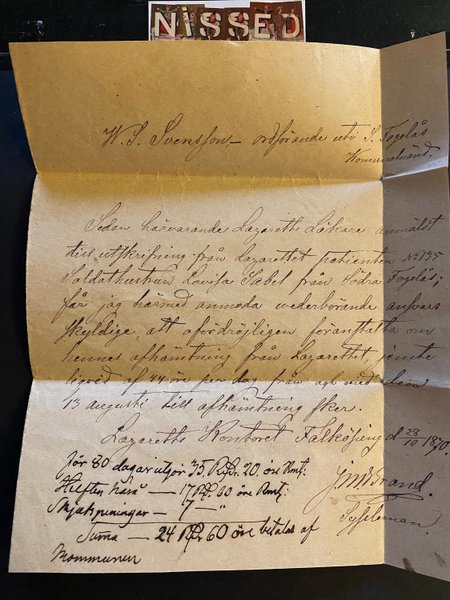 NiSSED
W. S. Svensson – ordförande uti S. Fogelås
Kommunalnämd.
Sedan härvarande Lazareth Läkare anmäldt
till utskrifning från Lazarettet patienten No 135
Soldathustrun Lovisa Sabel från Södra Fogelås;
får jag härmed anmoda wederbörande ansvars
skyldige, att ofördröjligen föranstalta om
hennes afhämtning från Lazarettet, jemte
liqvid af 44 öre per dag från och med den
13 augusti till afhämtning sker.
Lazareths Kontoret Falköping d 28/10 1870.
för 80 dagar utgör 35 RDr. 20. öre Rmt:
Helften häraf — 17 RDr 60 öre Rmt:
Skjutspenningar — 7 — "
Suma — 24 RDr 60 öre betalas af
Kommunen
Sysseloman.